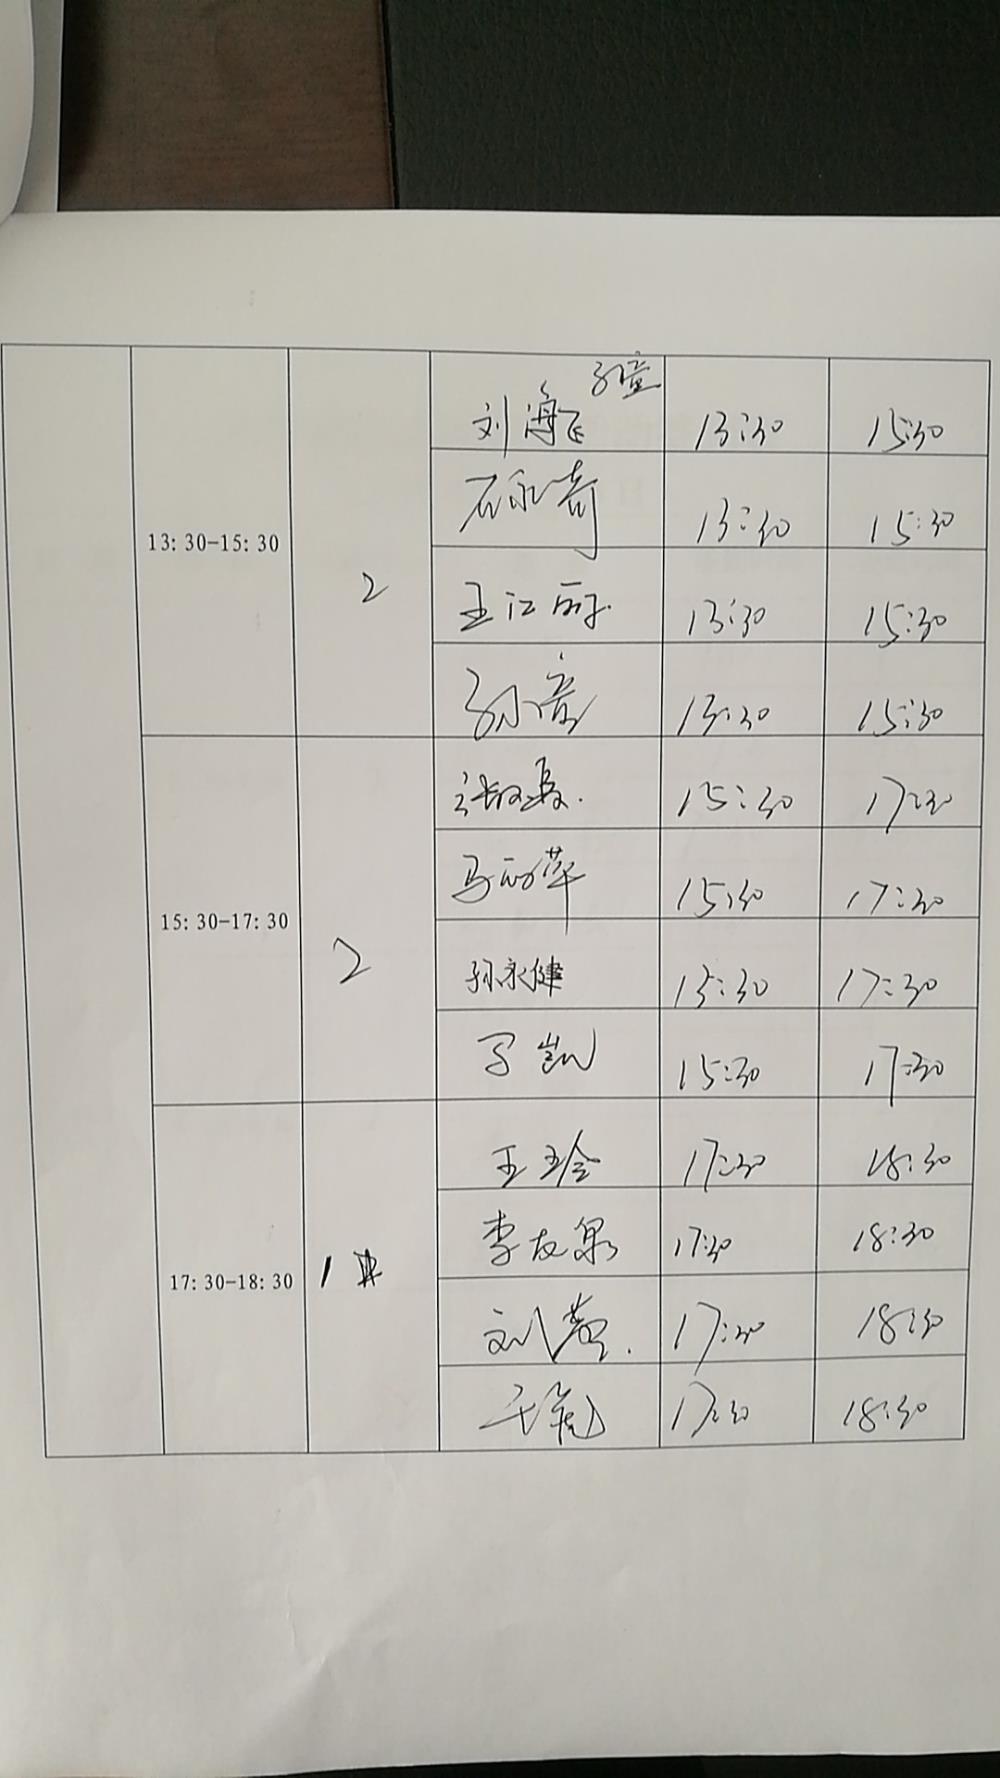 13:30-15:30
2
刘海飞
13:30
15:30
石永奇
13:30
15:30
王江丽
13:30
15:30
13:30
15:30
15:30-17:30
2
15:30
17:30
马丽萍
15:30
17:30
孙永健
15:30
17:30
马凯
15:30
17:30
17:30-18:30
1
王玉玲
17:30
18:30
李友泉
17:30
18:30
17:30
18:30
17:30
18:30